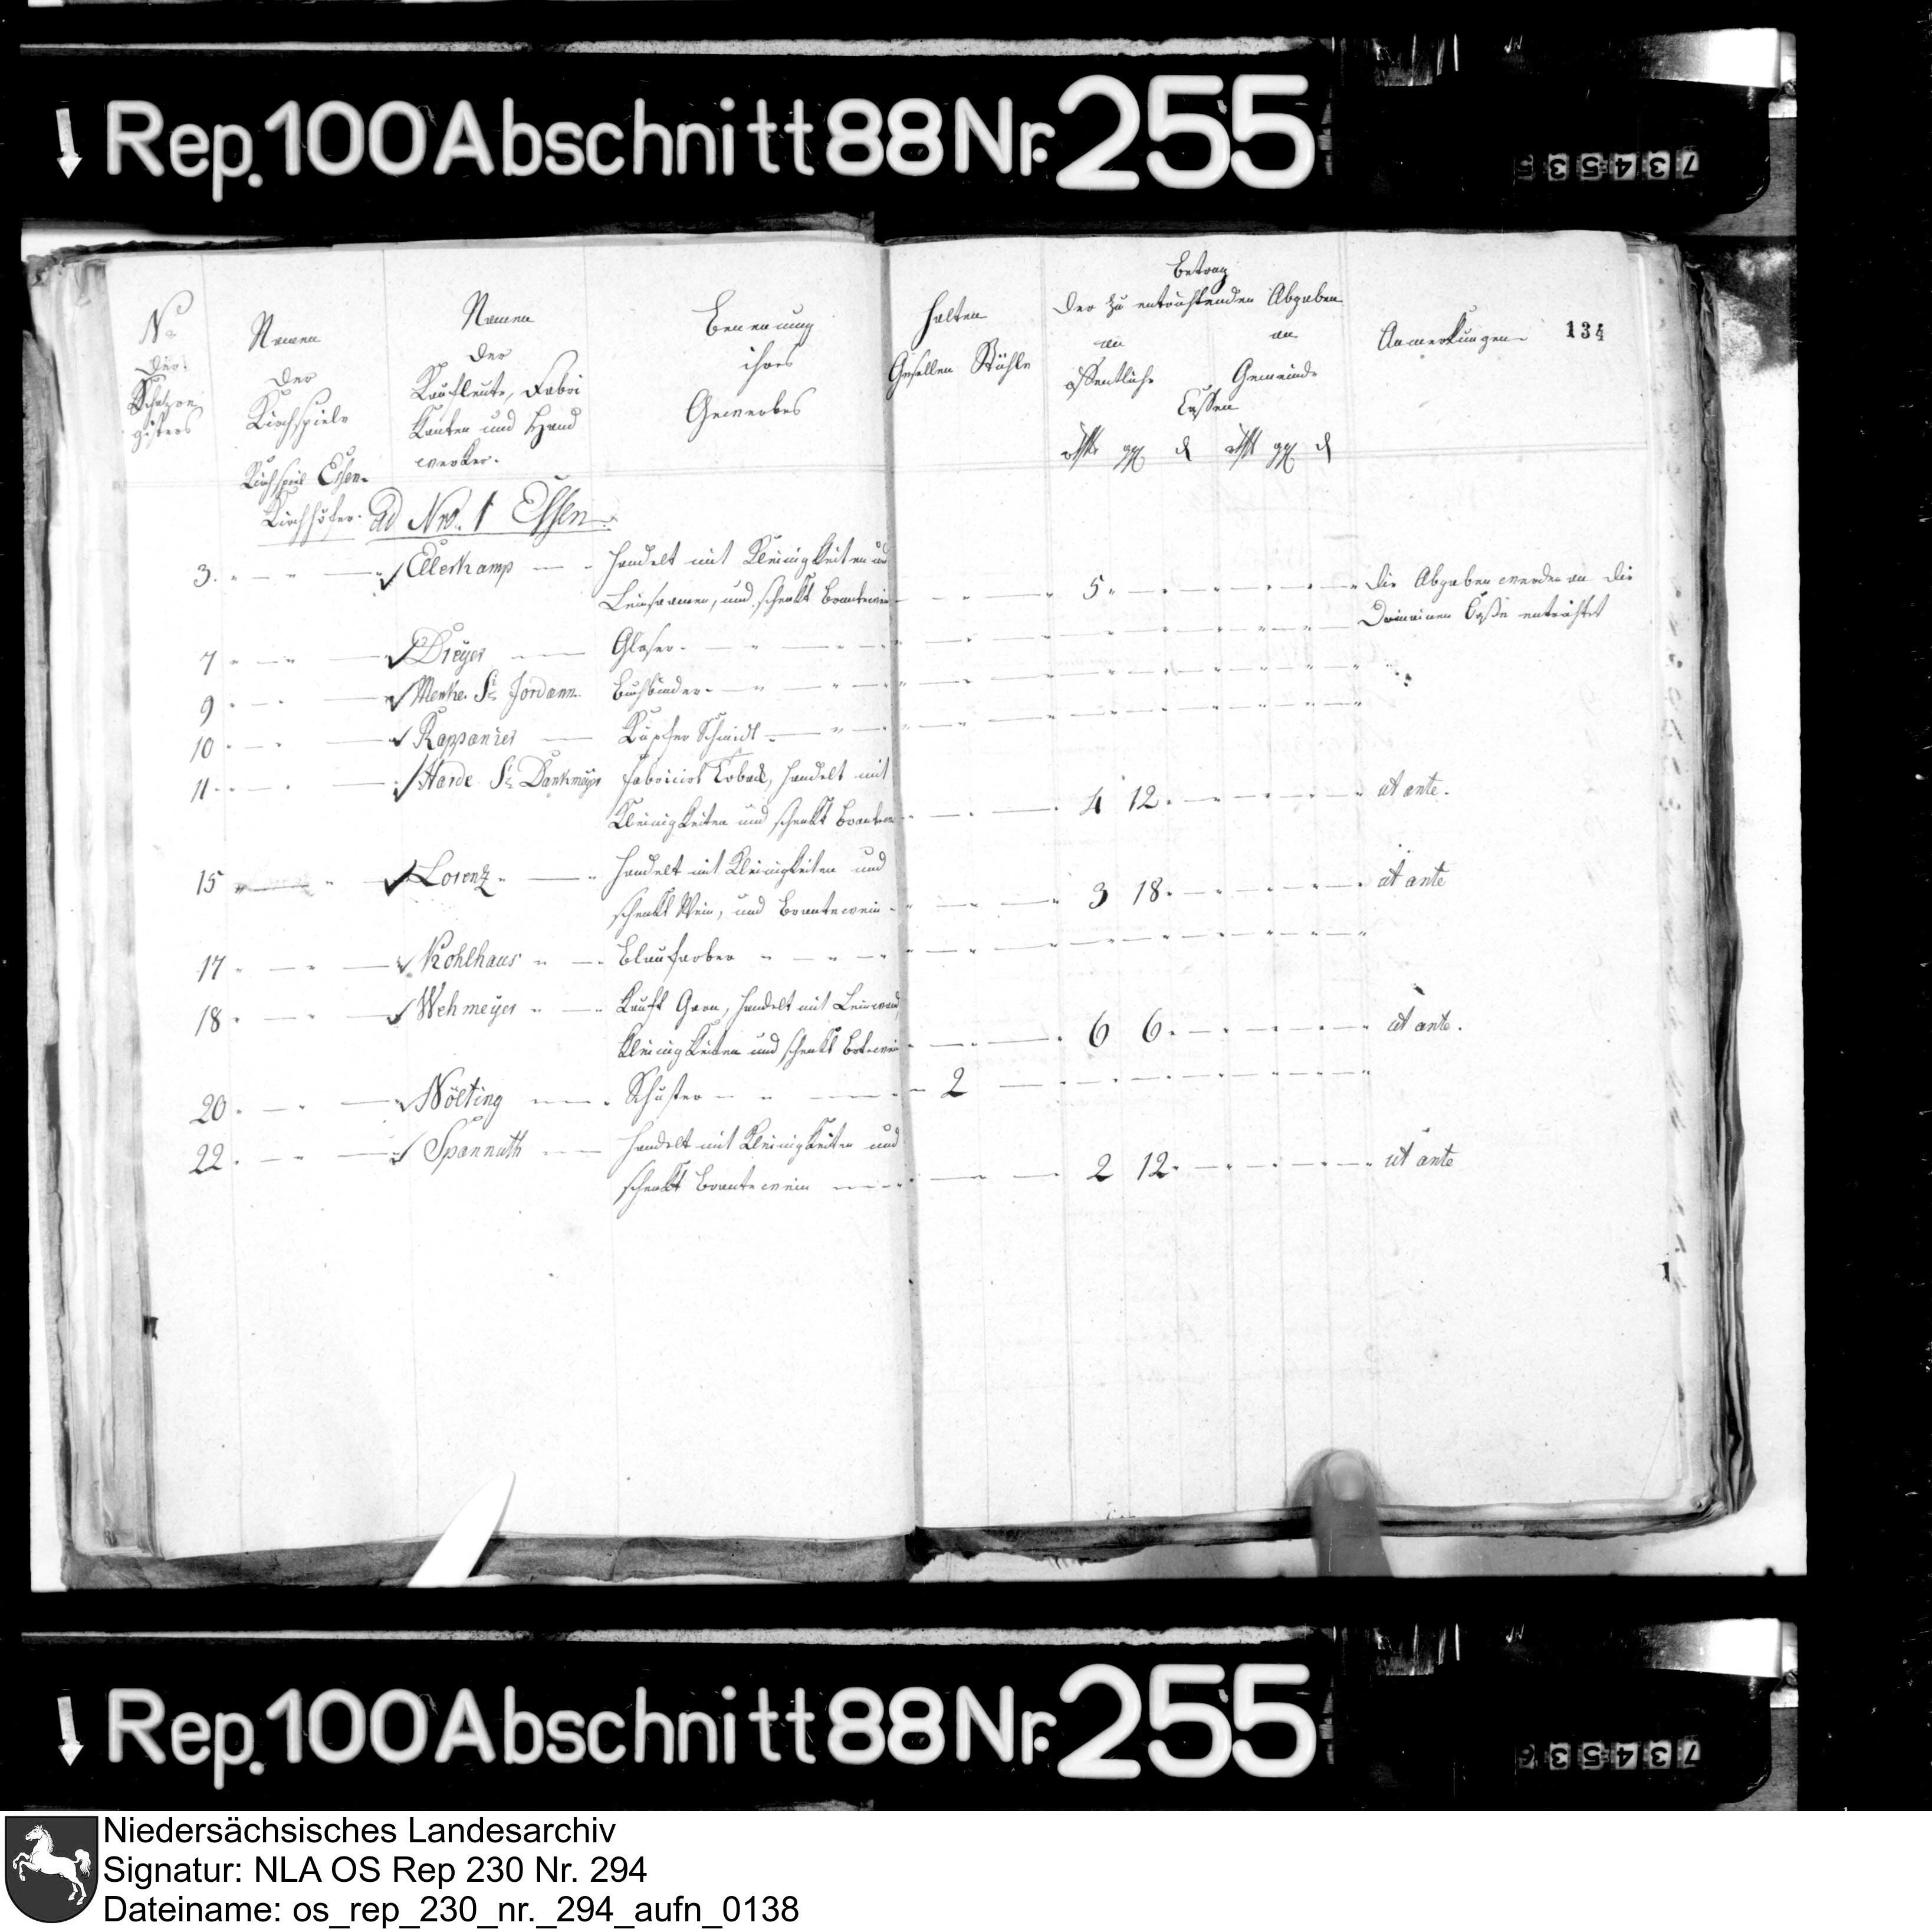 Rep. 100 Abschnitt 88 Nr. 255
734535
134
No
der
Schatzre
gisters
Namen
der
Kirchspiele
Namen
der
Kaufleute, Fabri
kanten und Hand
werker.
Benennung
ihres
Gewerbes
halten
Gesellen Stühle
Betrag
der zu entrichtenden Abgaben
an öffentliche
an Gemeinde
Cassen
rthlr ggl d rthlr ggl d
Anmerkungen
Kirchspiel Essen.
Kirchhöfer. ad Nro. 1 Essen.
3. Ellerkamp handelt mit Kleinigkeiten und 5 die Abgaben werden an die
Leinsaamen, und schenkt Brantewein Domainen Casse entrichtet
7 Dreyer Glaser
9 Menke St Jordann Buchbinder
10 Rappanier Kupfer Schmidt
11 Harde St Dankmeyer fabricirt Toback, handelt mit
Kleinigkeiten und schenkt Brantew 4 12 ut ante.
15 Lorenz handelt mit Kleinigkeiten und
schenkt Wein, und Brantewein 3 18 ut ante
17 Kohlhaus Blaufarber
18 Wehmeyer Kauft Garn, handelt mit Leinwand,
Kleinigkeiten und schenkt Brtewein 6 6 ut ante.
20 Nölting Schuster 2
22 Spannuth handelt mit Kleinigkeiten und
schenkt Brantewein 2 12 ut ante
Rep. 100 Abschnitt 88 Nr. 255
734536
Niedersächsisches Landesarchiv
Signatur: NLA OS Rep 230 Nr. 294
Dateiname: os_rep_230_nr._294_aufn_0138